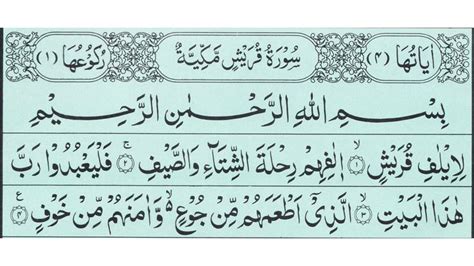 اٰیَاتُهَا (۴) سُوْرَةُ قُرَیْشٍ مَکِّیَّةٌ رُکُوْعُهَا (۱)
بِسْمِ اللّٰهِ الرَّحْمٰنِ الرَّحِیْمِ
لِاِیْلٰفِ قُرَیْشٍۙ۱ اٖلٰفِهِمْ رِحْلَةَ الشِّتَآءِ وَالصَّیْفِۚ۲ فَلْیَعْبُدُوْا رَبَّ
هٰذَا الْبَیْتِۙ۳ الَّذِیْۤ اَطْعَمَهُمْ مِّنْ جُوْعٍ۬ۙ وَّاٰمَنَهُمْ مِّنْ خَوْفٍ۠۴